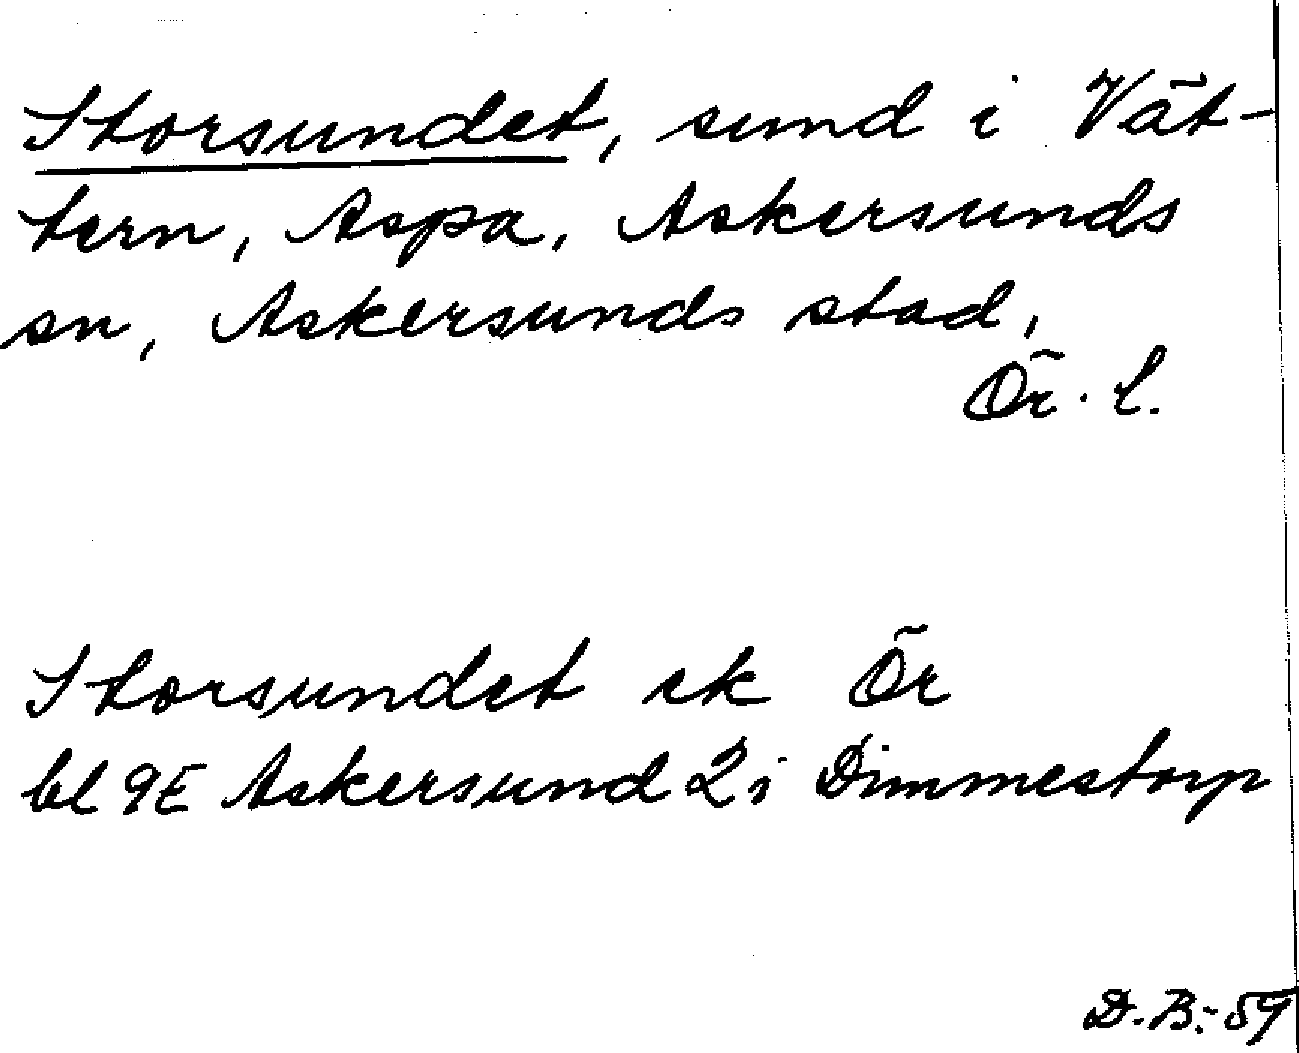 Storsundet, sund i Vät-
tern, Aspa, Askersunds
sn, Askersunds stad,
Ör. l.
Storsundet ek Ör
bl 9E Askersund 2 i Dimmestorp
D.B.-59